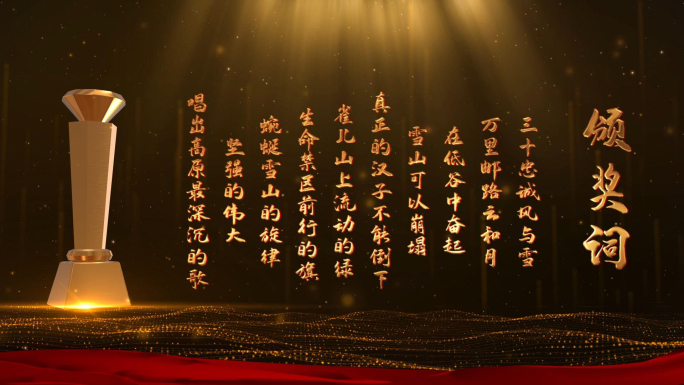 颁奖词
三十忠诚风与雪
万里邮路云和月
在低谷中奋起
雪山可以崩塌
真正的汉子不能倒下
雀儿山上流动的绿
生命禁区前行的旗
蜿蜒雪山的旋律
坚强的伟大
唱出高原最深沉的歌